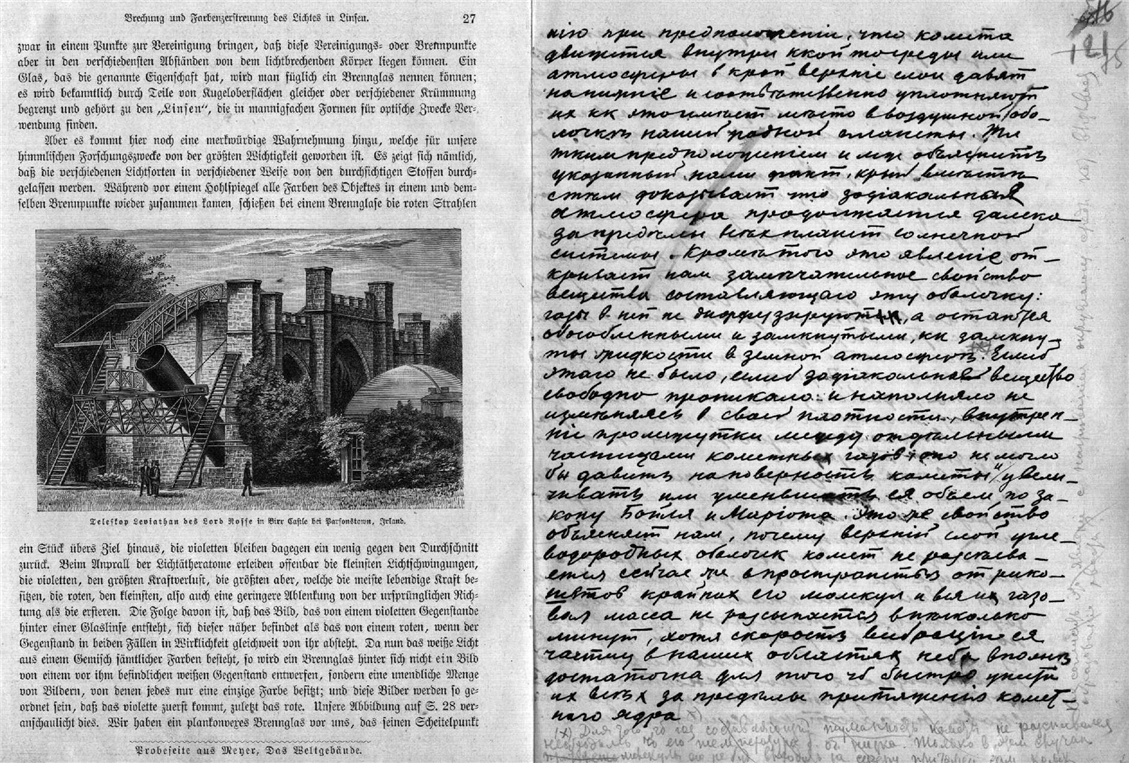 Brechung und Farbenzerstreuung des Lichtes in Linsen. 27
zwar in einem Punkte zur Vereinigung bringen, daß diese Vereinigungs- oder Brennpunkte
aber in den verschiedensten Abständen von dem lichtbrechenden Körper liegen können. Ein
Glas, das die genannte Eigenschaft hat, wird man füglich ein Brennglas nennen können;
es wird bekanntlich durch Teile von Kugeloberflächen gleicher oder verschiedener Krümmung
begrenzt und gehört zu den „Linsen“, die in mannigfachen Formen für optische Zwecke Ver-
wendung finden.
Aber es kommt hier noch eine merkwürdige Wahrnehmung hinzu, welche für unsere
himmlischen Forschungszwecke von der größten Wichtigkeit geworden ist. Es zeigt sich nämlich,
daß die verschiedenen Lichtsorten in verschiedener Weise von den durchsichtigen Stoffen durch-
gelassen werden. Während vor einem Hohlspiegel alle Farben des Objektes in einem und dem-
selben Brennpunkte wieder zusammen kamen, schießen bei einem Brennglase die roten Strahlen
Teleskop Leviathan des Lord Rosse in Birr Castle bei Parsonstown, Irland.
ein Stück übers Ziel hinaus, die violetten bleiben dagegen ein wenig gegen den Durchschnitt
zurück. Beim Anprall der Lichtätheratome erleiden offenbar die kleinsten Lichtschwingungen,
die violetten, den größten Kraftverlust, die größten aber, welche die meiste lebendige Kraft be-
sitzen, die roten, den kleinsten, also auch eine geringere Ablenkung von der ursprünglichen Rich-
tung als die ersteren. Die Folge davon ist, daß das Bild, das von einem violetten Gegenstande
hinter einer Glaslinse entsteht, sich dieser näher befindet als das von einem roten, wenn der
Gegenstand in beiden Fällen in Wirklichkeit gleichweit von ihr absteht. Da nun das weiße Licht
aus einem Gemisch sämtlicher Farben besteht, so wird ein Brennglas hinter sich nicht ein Bild
von einem vor ihm befindlichen weißen Gegenstand entwerfen, sondern eine unendliche Menge
von Bildern, von denen jedes nur eine einzige Farbe besitzt; und diese Bilder werden so ge-
ordnet sein, daß das violette zuerst kommt, zuletzt das rote. Unsere Abbildung auf S. 28 ver-
anschaulicht dies. Wir haben ein plankonvexes Brennglas vor uns, das seinen Scheitelpunkt
Probeseite aus Meyer, Das Weltgebäude.
121
нію при предположеніи, что комета
движется внутри ккой то среды или
атмосферы в крой верхніе слои давят
на нижніе и соотвѣтственно уплотняют
их кк это имѣет мѣсто в воздушной обо-
лочкѣ нашей родной планеты.
тким предположеніем и мы объяснить
указанный нами факт, крый вмѣстѣ
с тѣм доказывает что зодіакальная
атмосфера продолжается далеко
за предѣлы всѣх планет солнечной
системы. Кромѣ того это явленіе от-
крывает нам замѣчательное свойство
вещества составляющаго эту оболочку:
газы в ней не диффузируют, а остаются
обособленными и замкнутыми, кк замкну-
ты жидкости в земной атмосферѣ. Еслиб
этаго не было, еслиб зодіакальное вещество
свободно проникало и наполняло не
измѣняясь в своей плотности, внутрен-
ніе промежутки между отдѣльными
частицами кометных газов, оно не могло
бы давить на поверхность кометы и увели-
чивать или уменьшать ея объем по за-
кону Бойля и Маріота. Это же свойство
объясняет нам, почему верхній слой угле-
водородных оболочек комет не разсѣева-
ется сейчас же в пространствѣ от рико-
шетов крайних его молекул и вся их газо-
вая масса не разсыпается в нѣсколько
минут, хотя скорость вибраціи ея
частиц в наших областях неба вполнѣ
достаточна для того чтоб быстро унести
их всѣх за предѣлы притяженія комет-
наго ядра
(х) Для того, чтоб газ составляющій не разсеивался
необходимо чтоб его температура б. низка. Только в этом случае